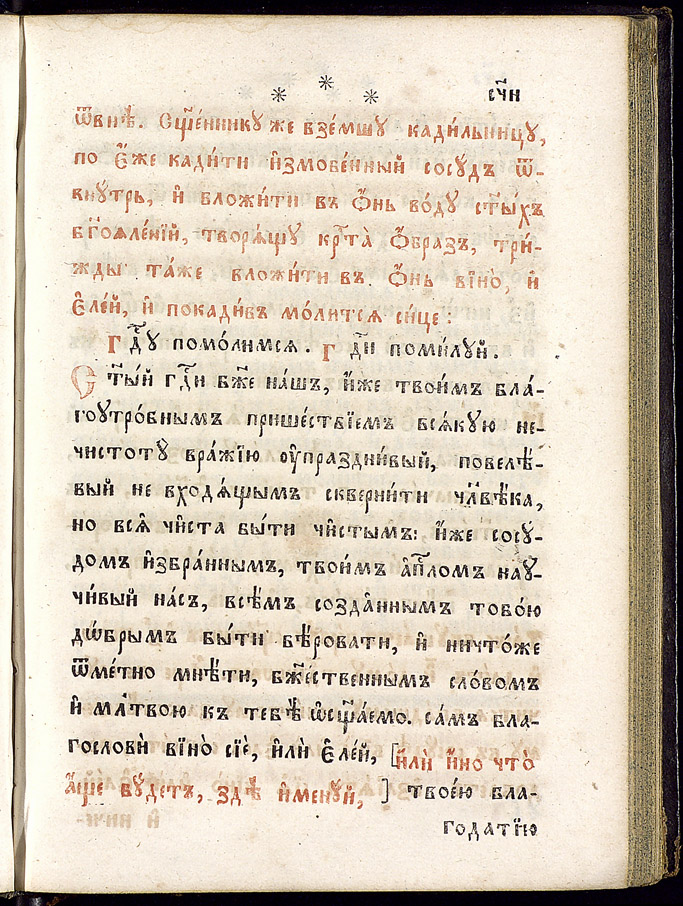 * * * * с҃чи
ѿвнѣ̀. Сщ҃е́нникꙋ же взе́мшꙋ кади́льницꙋ,
по є҆́же кади́ти и҆змове́нный сосꙋ́дъ ѿ-
внꙋ́трь, и҆ вложи́ти въ ѻ҆́нь во́дꙋ ст҃ы́хъ
бг҃оѧвле́нїй, творѧ́щꙋ крⷭ҇та̀ ѻ҆́бразъ, три́-
жды та́же вложи́ти въ ѻ҆́нь вїно̀, и҆
є҆ле́й, и҆ покади́въ мо́литсѧ си́це:
Гдⷭ҇ꙋ помо́лимсѧ. Гдⷭ҇и поми́лꙋй.
Ст҃ы́й гдⷭ҇и бж҃е на́шъ, и҆́же твои́мъ бла-
гоꙋтро́бнымъ прише́ствїемъ всѧ́кꙋю не-
чистотꙋ̀ вра́жїю ᲂу҆праздни́вый, повелѣ́-
вый не входѧ́щымъ скверни́ти чл҃вѣ́ка,
но всѧ̑ чи̑ста бы́ти чи̑стымъ: и҆́же сосꙋ́-
домъ и҆збра́ннымъ, твои́мъ а҆пⷭ҇ломъ наꙋ-
чи́вый на́съ, всѣ̑мъ со́зданнымъ тобо́ю
дѡ́брымъ бы́ти вѣ́ровати, и҆ ничто́же
ѿме́тно мнѣ́ти, бжⷭ҇е́ственнымъ сло́вомъ
и҆ мл҃твою къ тебѣ̀ ѡ҆сщ҃а́емо. са́мъ бла-
гословѝ вїно̀ сїѐ, и҆лѝ є҆ле́й, [и҆лѝ и҆́но что̀
а҆́ще бꙋ́детъ, здѣ̀ и҆менꙋ́й,] твое́ю бла-
годатїю